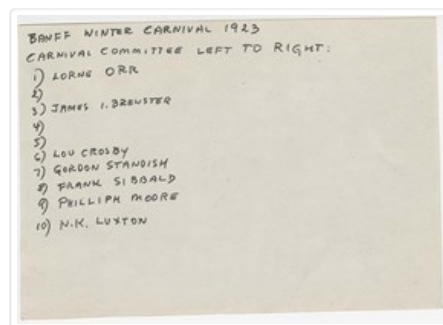 BANFF WINTER CARNIVAL 1923
CARNIVAL COMMITTEE LEFT TO RIGHT:
1) LORNE ORR
2)
3) JAMES I. BREWSTER
4)
5)
6) LOU CROSBY
7) GORDON STANDISH
8) FRANK SIBBALD
9) PHILLIPH MOORE
10) N.K. LUXTON